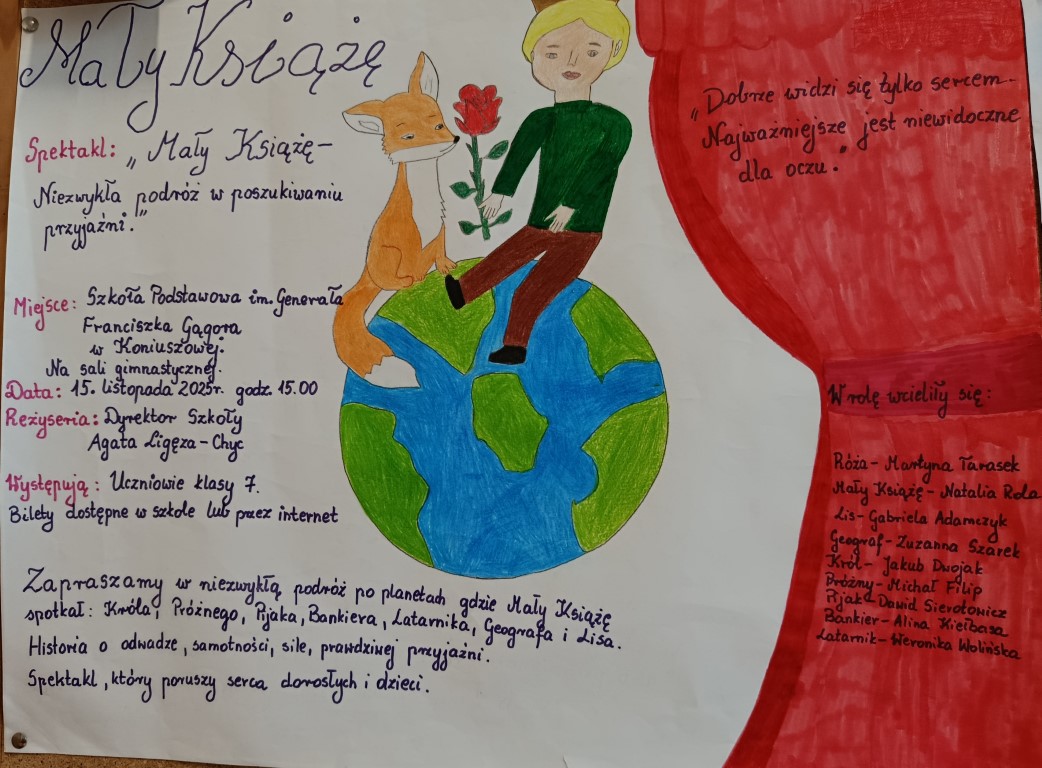 Mały Książę
Spektakl: „Mały Książę –
Niezwykła podróż w poszukiwaniu
przyjaźni."
Miejsce: Szkoła Podstawowa im. Generała
Franciszka Gągora
w Koniuszowej.
Na sali gimnastycznej.
Data: 15. listopada 2025r. godz. 15.00
Reżyseria: Dyrektor Szkoły
Agata Ligęza-Chyc
Występują: Uczniowie klasy 7.
Bilety dostępne w szkole lub przez internet
Zapraszamy w niezwykłą podróż po planetach gdzie Mały Książę
spotkał: Króla, Próżnego, Pijaka, Bankiera, Latarnika, Geografa i Lisa.
Historia o odwadze, samotności, sile, prawdziwej przyjaźni.
Spektakl, który poruszy serca dorosłych i dzieci.
„Dobrze widzi się tylko sercem –
Najważniejsze jest niewidoczne
dla oczu."
W rolę wcieliły się:
Róża – Martyna Tarasek
Mały Książę – Natalia Rola
Lis – Gabriela Adamczyk
Geograf – Zuzanna Szarek
Król – Jakub Dwojak
Próżny – Michał Filip
Pijak – Dawid Sierotowicz
Bankier – Alina Kiełbasa
Latarnik – Weronika Wolińska